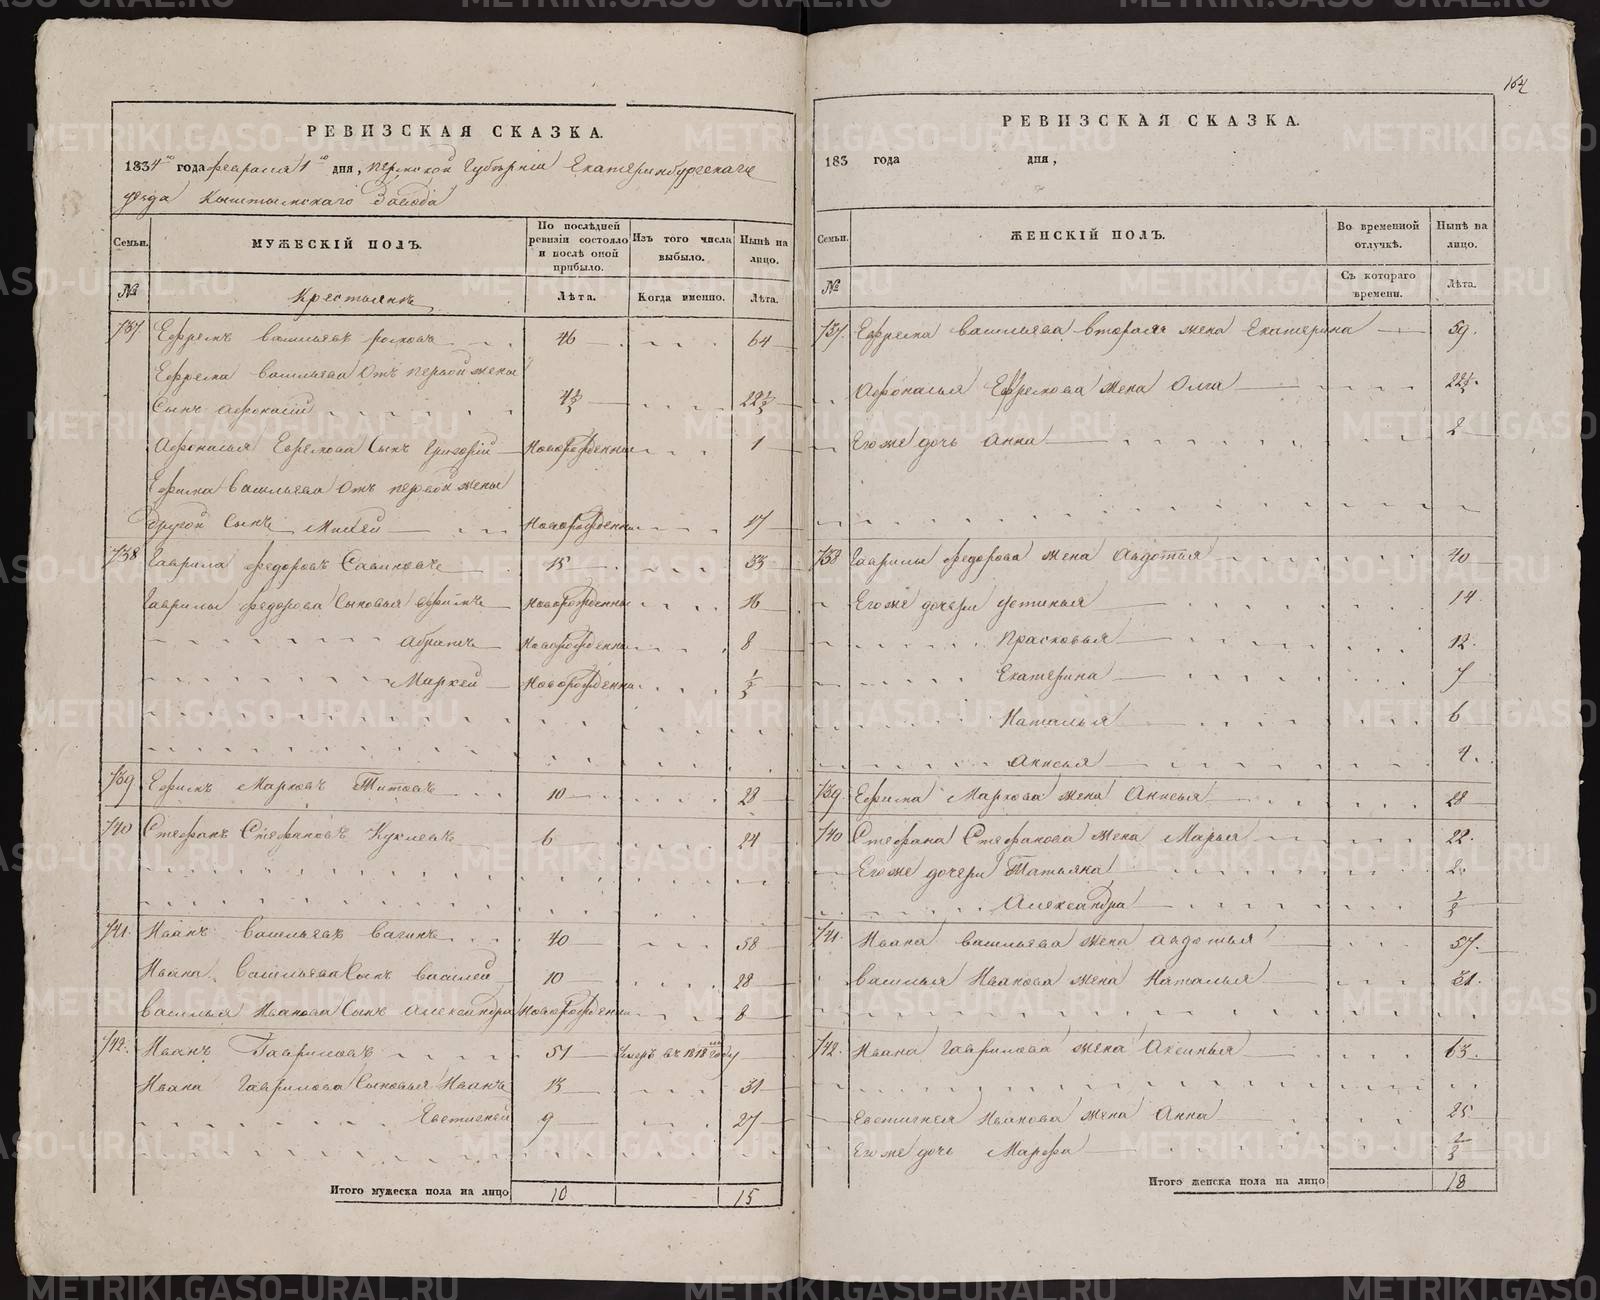 164
РЕВИЗСКАЯ СКАЗКА.
1834го года февраля 1го дня, Пермской Губернiи Екатеринбургскаго
уезда Кыштымскаго Завода
Семьи. МУЖЕСКIЙ ПОЛЪ. По послѣдней ревизiи состояло и послѣ оной прибыло. Изъ того числа выбыло. Нынѣ на лицо.
№ Крестьянъ Лѣта. Когда именно. Лѣта.
737 Ефремъ Васильевъ 46 64
Ефрема Васильева отъ первой жены
Сынъ Афонасiй 4½ 22½
Афонасья Ефремова Сынъ Григорiй Новорожденны 1
Ефрема Васильева отъ первой жены
другой Сынъ Новорожденны 17
738 Гаврила Федоровъ Савиновъ 15 33
Гаврилы Федорова Сыновья Ефимъ Новорожденны 16
Абрамъ Новорожденны 8
Маркей Новорожденны ½
739 Ефимъ Марковъ Титовъ 10 28
740 Стефанъ Стефановъ Куклевъ 6 24
741 Иванъ Васильевъ Вагинъ 40 58
Ивана Васильева Сынъ Василей 10 28
Василья Иванова Сынъ Александра Новорожденны 8
742. Иванъ Гавриловъ 51 Умеръ въ 1818мъ году
Ивана Гаврилова Сыновья Иванъ 13 31
Евстигней 9 27
Итого мужеска пола на лицо 10 15
РЕВИЗСКАЯ СКАЗКА.
183 года дня,
Семьи. ЖЕНСКIЙ ПОЛЪ. Во временной отлучкѣ. Нынѣ на лицо.
№ Съ котораго времени. Лѣта.
737. Ефрема Васильева вторая жена Екатерина 59.
Афонасья Ефремова жена Олга 22½.
Его же дочь Анна 2
738 Гаврилы Федорова жена Авдотья 40
Его же дочери Устинья 14.
Прасковья 12.
Екатерина 7
Наталья 6
Анисья 4.
739. Ефима Маркова жена Анисья 28
740 Стефана Стефанова жена Марья 22.
Его же дочери Татьяна 2.
Александра ½
741. Ивана Васильева жена Авдотья 57.
Василья Иванова жена Наталья 31.
742. Ивана Гаврилова жена Аксинья 63.
Евстигнея Иванова жена Анна 25
Его же дочь Марфа ½
Итого женска пола на лицо 18
METRIKI.GASO-URAL.RU